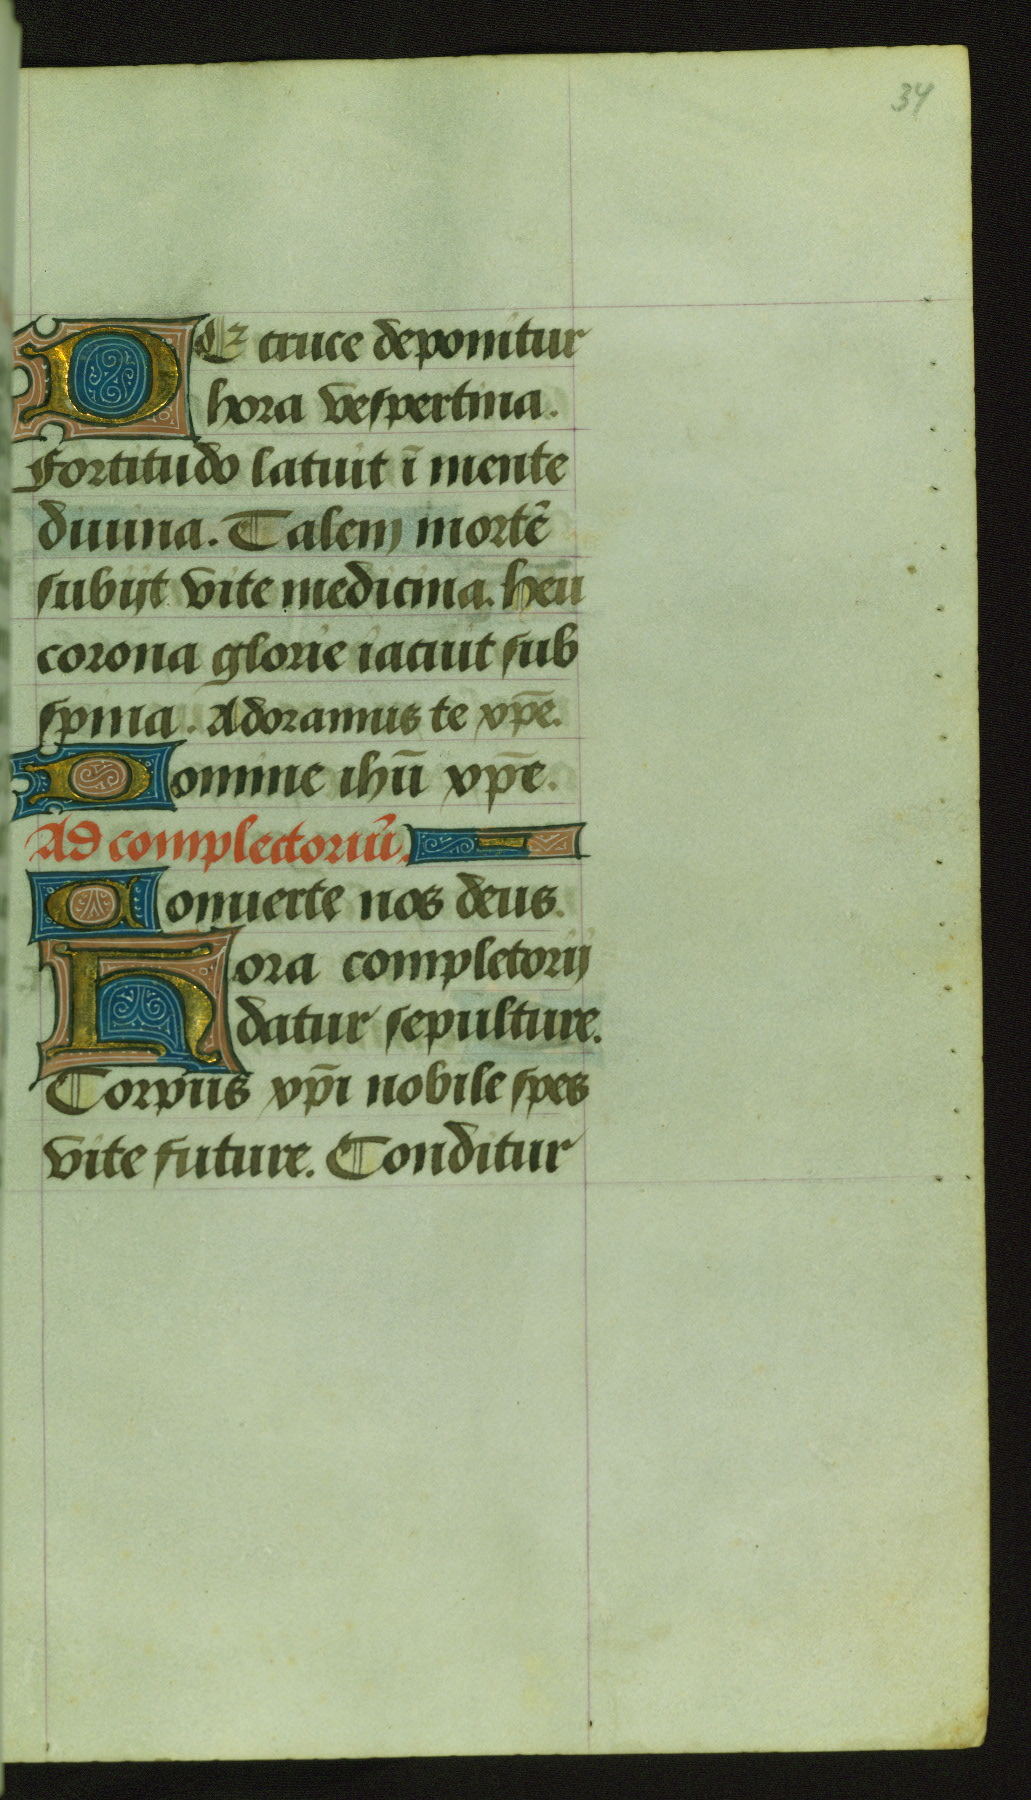 34
DE cruce deponitur
hora vespertina.
Fortitudo latuit ī mente
diuina. Talem mortē
subijt vite medicina. heu
corona glorie iacuit sub
spina. Adoramus te xp̄e.
Domine ihū xp̄e.
Ad complectoriū.
Conuerte nos deus.
Hora completorij
datur sepulture.
Corpus xp̄i nobile spes
vite future. Conditur